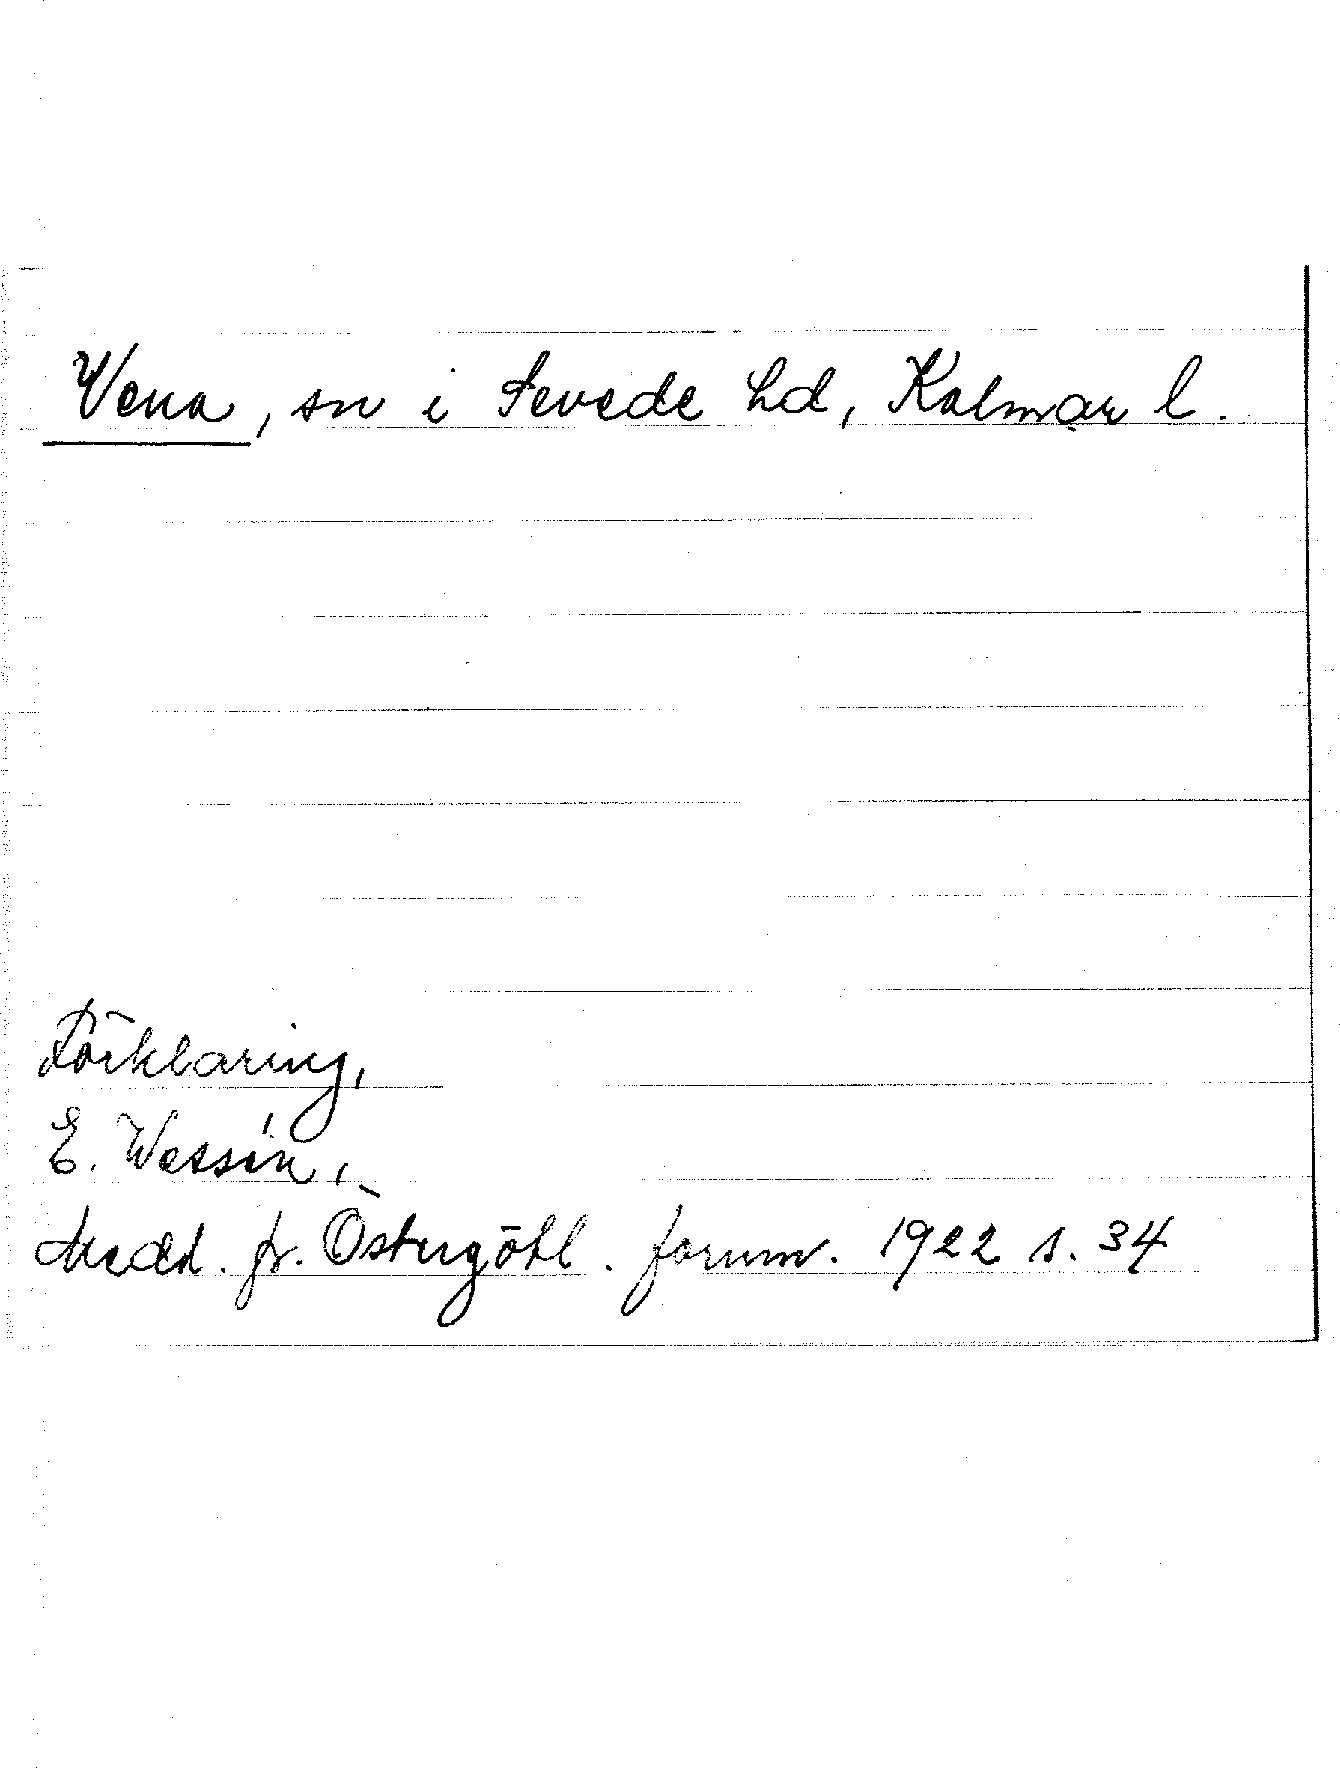 Vena, sn i Sevede hd, Kalmar l.
Förklaring,
E. Wessén,
Medd. fr. Östergötl. fornm. 1922 s. 34